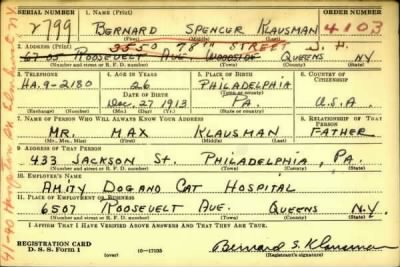 SERIAL NUMBER
1. NAME (Print)
ORDER NUMBER
2799
BERNARD SPENCER KLAUSMAN
4103
(First) (Middle) (Last)
3550 78th STREET J. H.
2. ADDRESS (Print)
67-03 ROOSEVELT AVE. WOODSIDE QUEENS N.Y.
(Number and street or R. F. D. number) (Town) (County) (State)
3. TELEPHONE
4. AGE IN YEARS
5. PLACE OF BIRTH
6. COUNTRY OF CITIZENSHIP
HA.9-2180
26
PHILADELPHIA
DATE OF BIRTH
(Town or county)
Dec. 27 1913
PA.
U.S.A.
(Exchange) (Number)
(Mo.) (Day) (Yr.)
(State or country)
7. NAME OF PERSON WHO WILL ALWAYS KNOW YOUR ADDRESS
8. RELATIONSHIP OF THAT PERSON
MR. MAX KLAUSMAN
FATHER
(Mr., Mrs., Miss) (First) (Middle) (Last)
9. ADDRESS OF THAT PERSON
433 JACKSON St. PHILADELPHIA, PA.
(Number and street or R. F. D. number) (Town) (County) (State)
10. EMPLOYER'S NAME
AMITY DOG AND CAT HOSPITAL
11. PLACE OF EMPLOYMENT OR BUSINESS
6507 ROOSEVELT AVE. QUEENS N.Y.
(Number and street or R. F. D. number) (Town) (County) (State)
I AFFIRM THAT I HAVE VERIFIED ABOVE ANSWERS AND THAT THEY ARE TRUE.
REGISTRATION CARD
D. S. S. Form 1
(over)
16-17105
Bernard S. Klausman
(Registrant's signature)